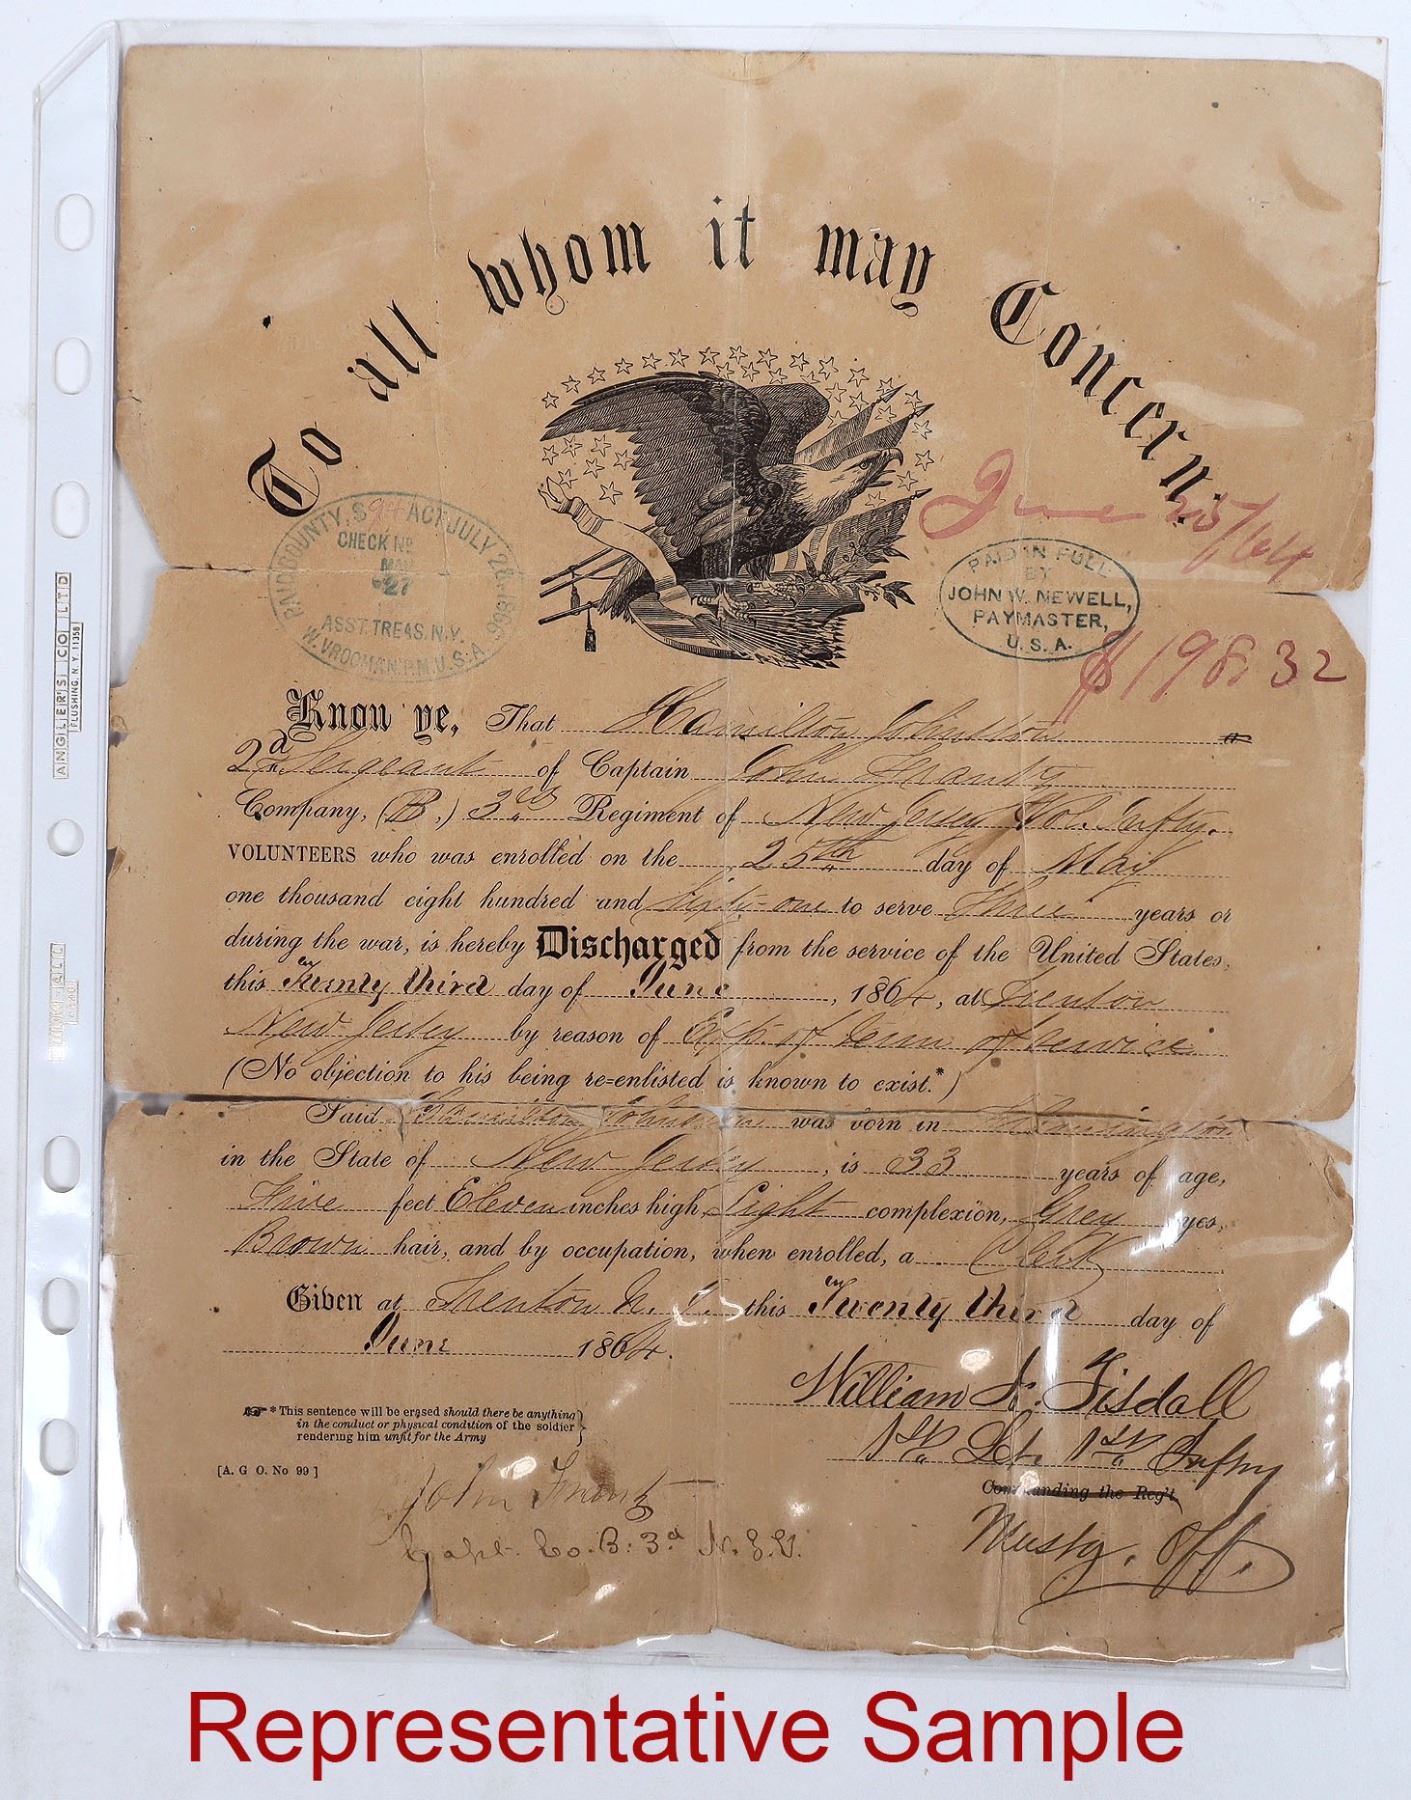 To all whom it may Concern.
PAID BOUNTY, $ ACT JULY 28, 1866
CHECK No
MAY
27
ASST. TREAS. N.Y.
W. VROOMAN P.M. U.S.A.
June 25/64
PAID IN FULL
BY
JOHN W. NEWELL,
PAYMASTER,
U.S.A.
$198.32
Know ye, That Hamilton Johnston a
2d Sergeant of Captain John Frantz
Company, (B,) 3rd Regiment of New Jersey Vol. Infty.
VOLUNTEERS who was enrolled on the 25th day of May
one thousand eight hundred and Sixty-one to serve Three years or
during the war, is hereby Discharged from the service of the United States,
this Twenty third day of June, 1864, at Trenton
New Jersey by reason of Exp. of term of service
(No objection to his being re-enlisted is known to exist.*)
Said Hamilton Johnston was born in
in the State of New Jersey, is 33 years of age,
Five feet Eleven inches high, Light complexion, Grey yes,
Brown hair, and by occupation, when enrolled, a Clerk
Given at Trenton N. J. this Twenty third day of
June 1864.
William A. Tisdall
1st Lt. 1st Infty
Commanding the Reg't
Mustg. Off.
* This sentence will be erased should there be anything
in the conduct or physical condition of the soldier
rendering him unfit for the Army
[A. G O. No 99]
John Frantz
Capt. Co. B. 3d N.J.V.
ANGLER'S CO LTD
FLUSHING, N.Y. 11358
Representative Sample